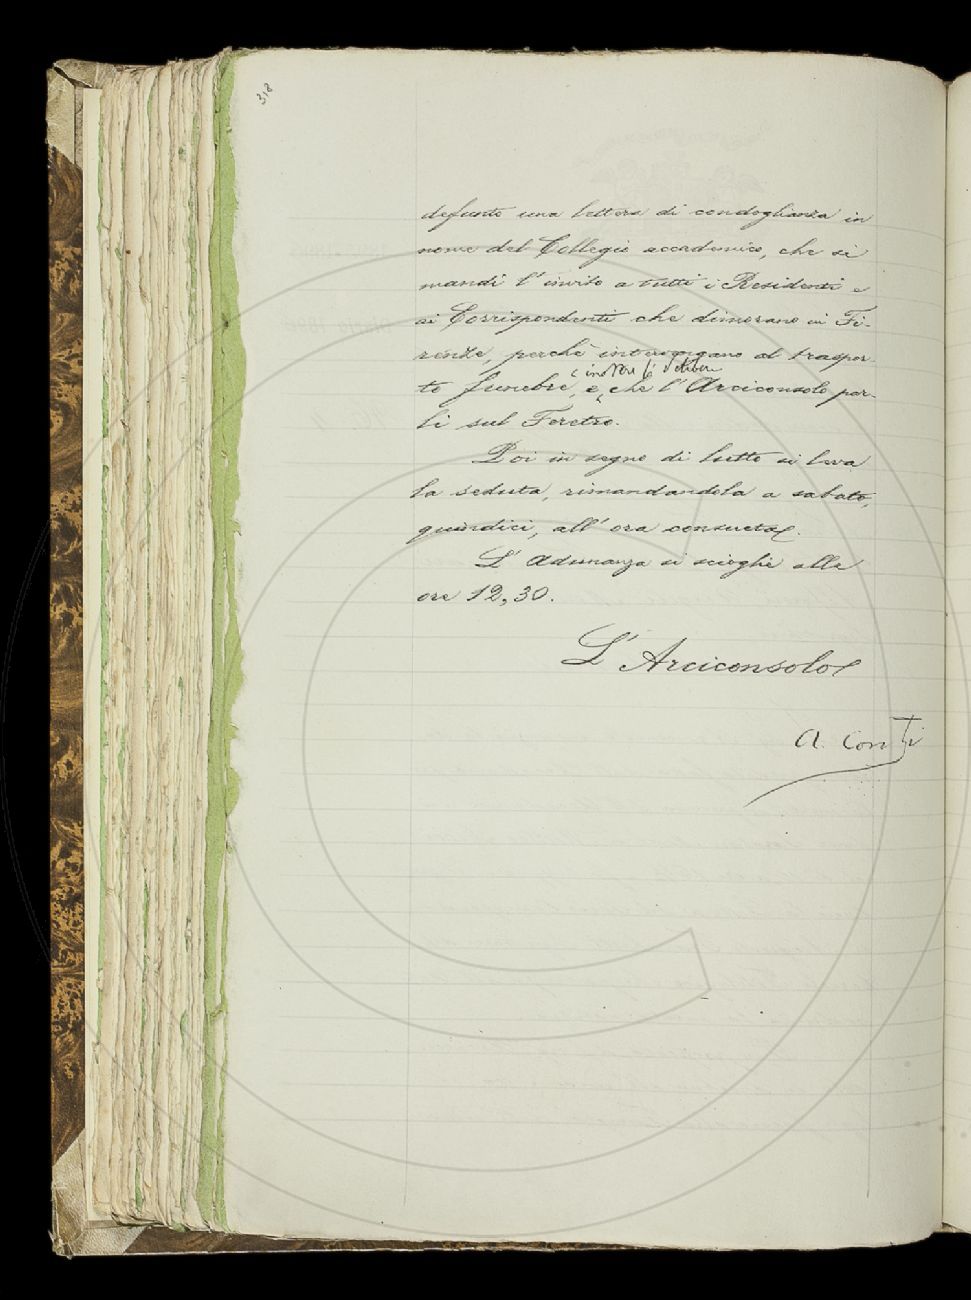 318
defunto una lettera di condoglianza in
nome del Collegio accademico, che si
mandi l'invito a tutti i Residenti e
ai Corrispondenti che dimorano in Fi-
renze, perchè intervengano al traspor-
to funebre, e, che l'Arciconsolo par-
e inoltre si delibera
li sul Feretro.
Poi in segno di lutto si leva
la seduta, rimandandola a sabato,
quindici, all'ora consueta.
L'Adunanza si scioglie alle
ore 12,30.
L'Arciconsolo
A. Conti